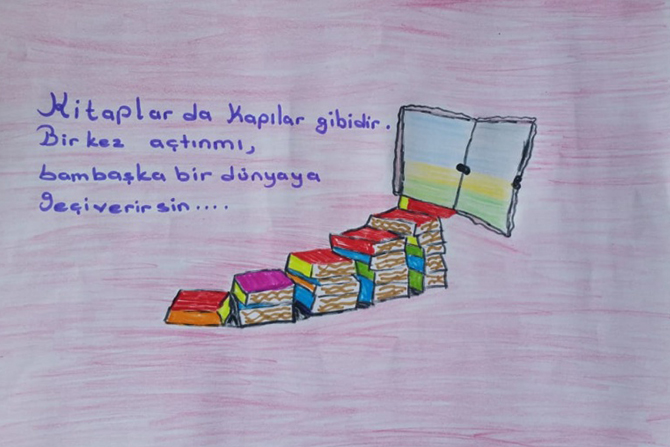 Kitaplar da Kapılar gibidir.
Bir kez açtınmı,
bambaşka bir dünyaya
geçiverirsin....